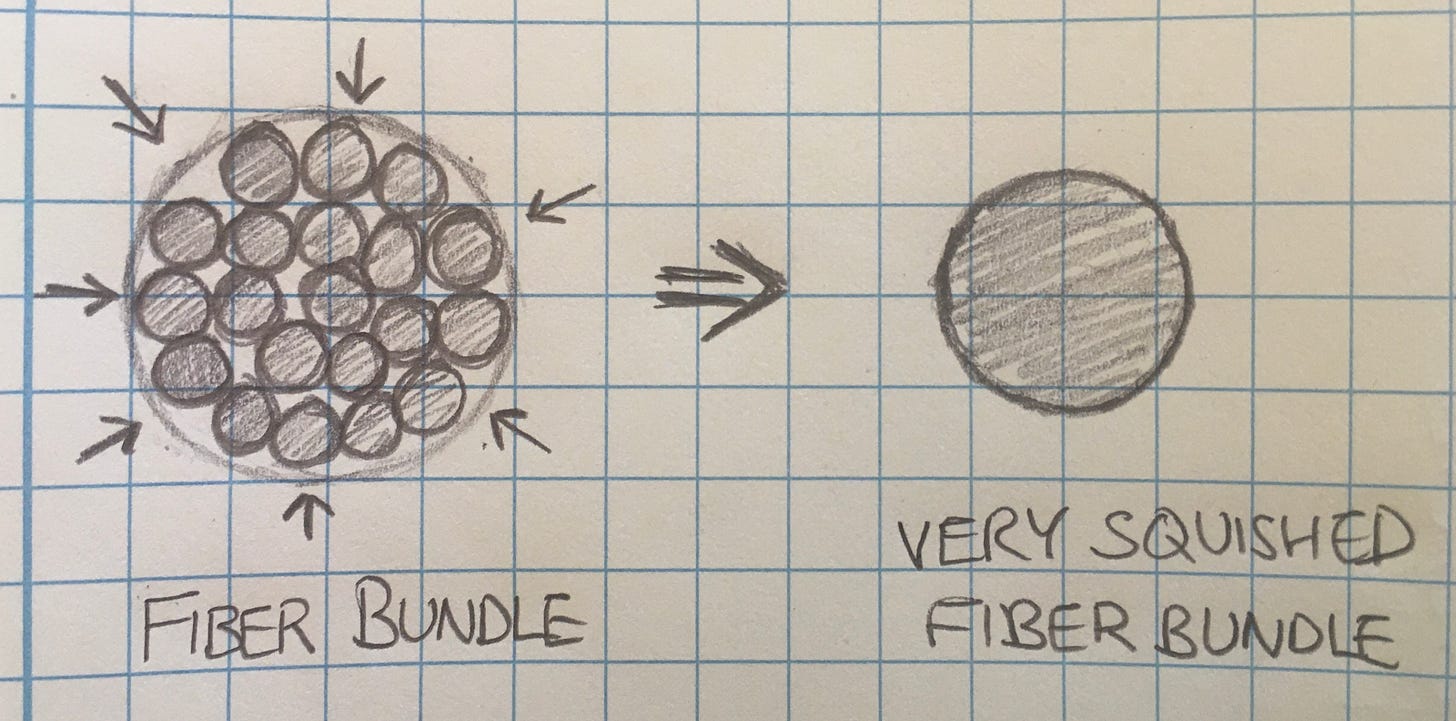 FIBER BUNDLE
VERY SQUISHED
FIBER BUNDLE